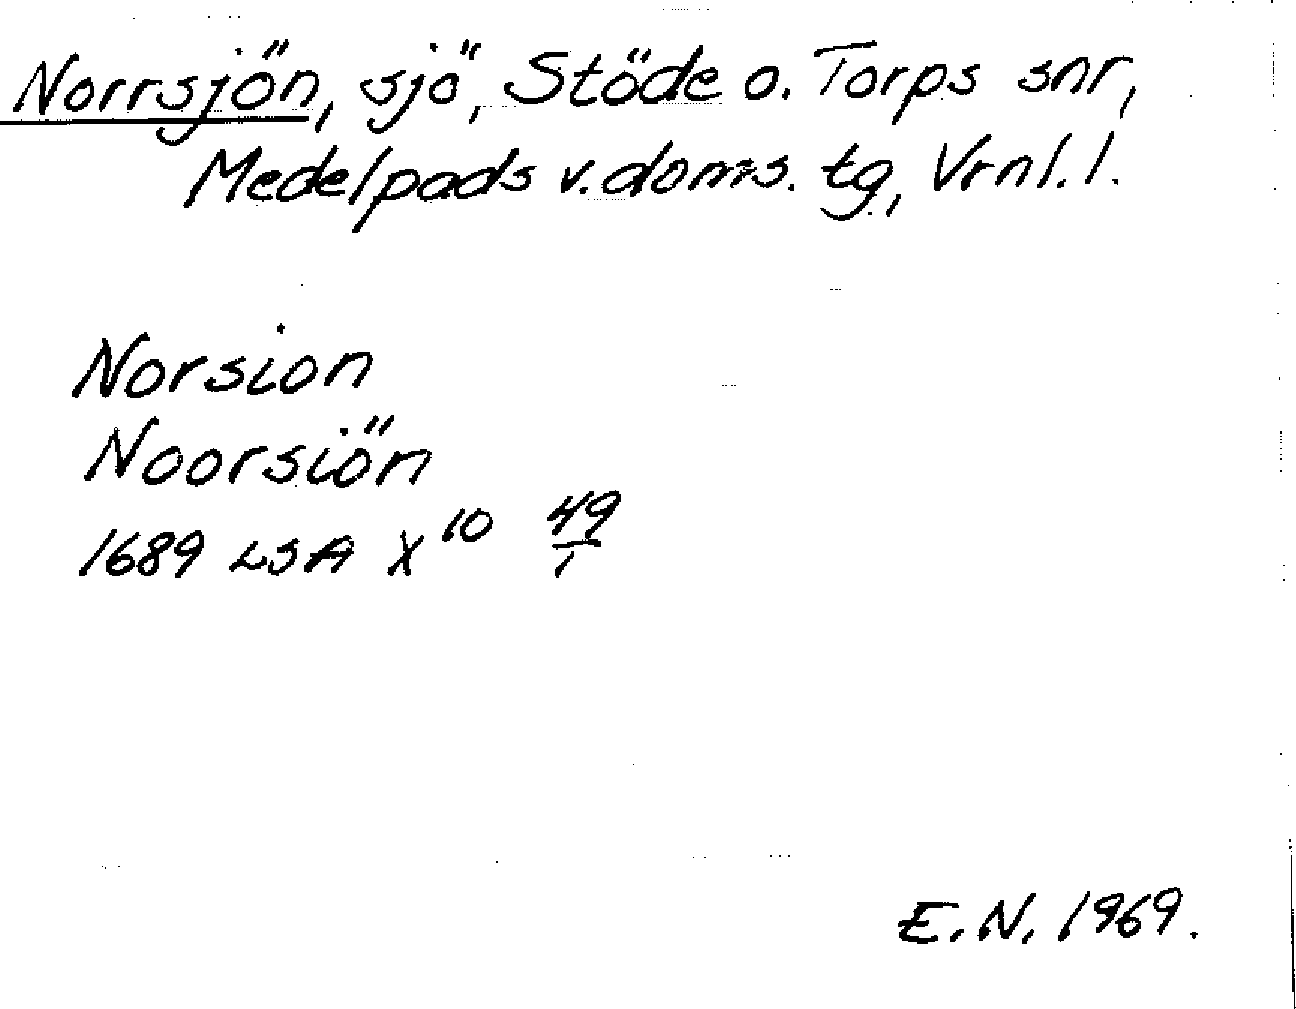 Norrsjön, sjö, Stöde o. Torps snr,
Medelpads v. doms. tg, Vrnl. l.
Norsion
Noorsiön
1689 LSA X¹⁰ 49/1
E. N. 1969.